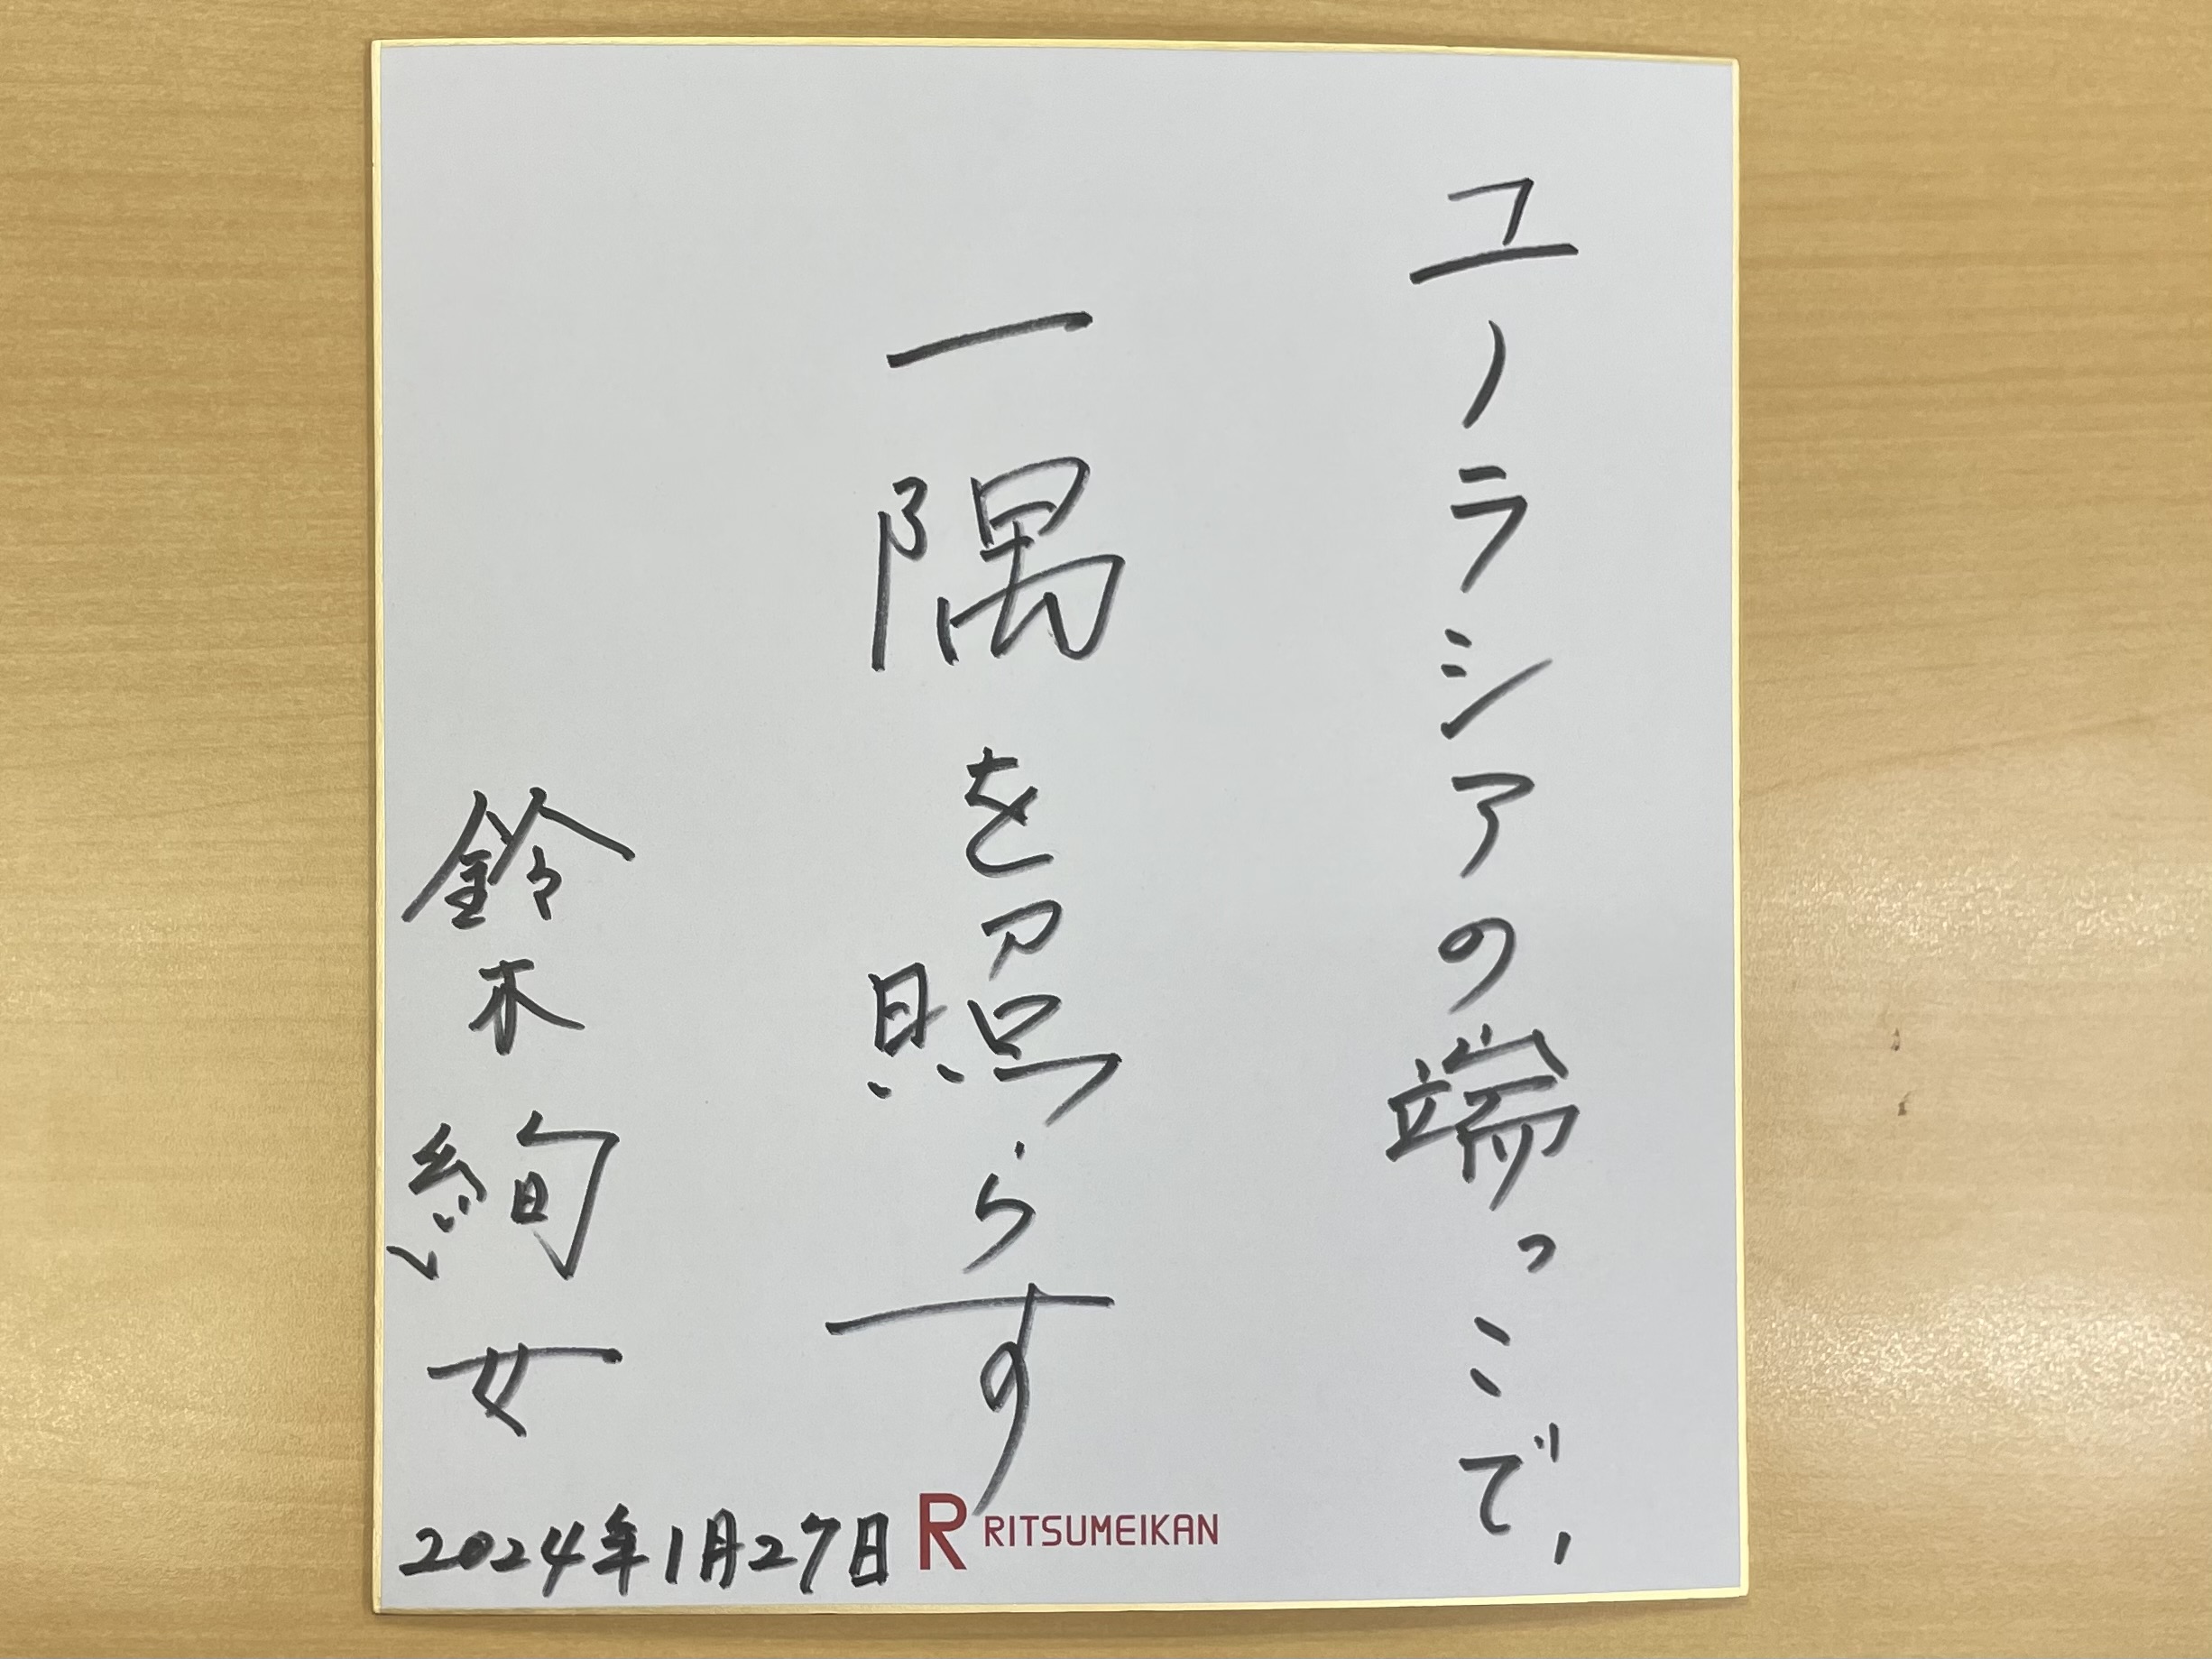 ユーラシアの端っこで,
一隅を照らす
鈴木絢女
2024年1月27日
R RITSUMEIKAN